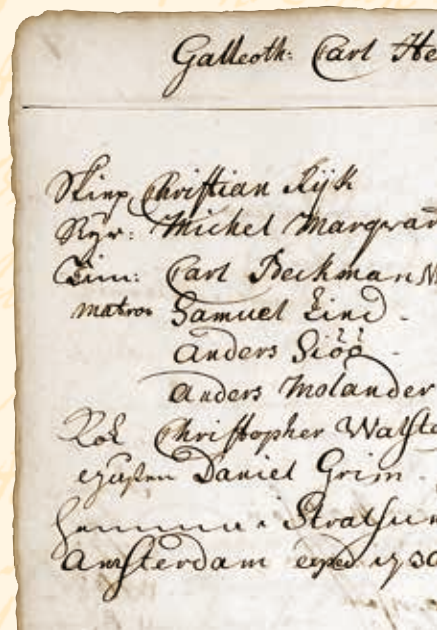 Galleoth: Carl He
Skepp Christian Kijk
Styr: Michel Marqvar
Tim: Carl Beckman
matros Samuel Lind
Anders Siöö
Anders Molander
Kok Christopher Walste
Daniel Grim
Stralsun
Amsterdam 173